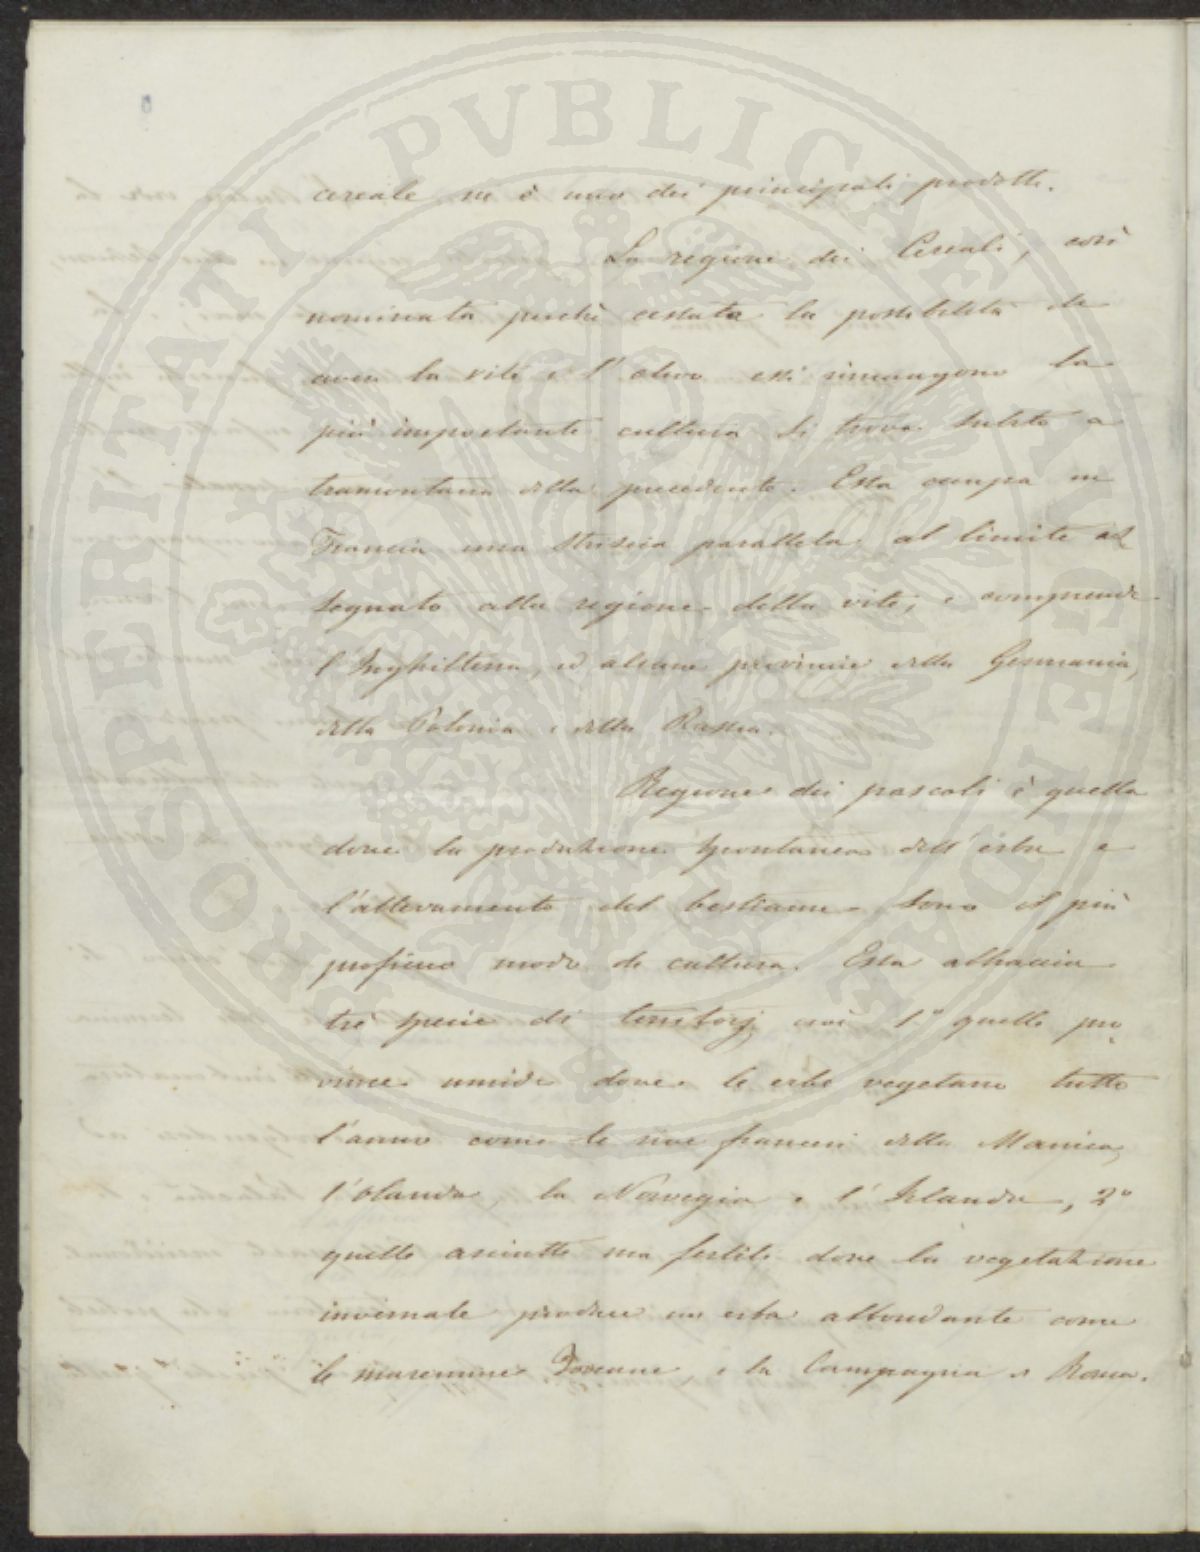 cereale ne è uno dei principali prodotti.
La regione dei Cereali, così
nominata perchè cessata la possibilità di
aver la vite e l'olivo essi rimangono la
più importante cultura si trova subito a
tramontana della precedente. Essa occupa in
Francia una striscia parallela al limite as
segnato alla regione della vite, e comprende
l'Inghilterra, ed alcune provincie della Germania,
della Polonia e della Russia.
Regione dei pascoli è quella
dove la produzione spontanea dell'erba e
l'allevamento del bestiame sono il più
proficuo modo di cultura. Essa abbraccia
tre specie di territorj cioè 1° quelle pro
vince umide dove le erbe vegetano tutto
l'anno come le rive francesi della Manica,
l'Olanda, la Norvegia e l'Irlanda, 2°
quelle asciutte ma fertili dove la vegetazione
invernale produce un erba abbondante come
le maremme Toscane, e la Campagna di Roma.
PROSPERITATI PVBLICAE AVGENDAE